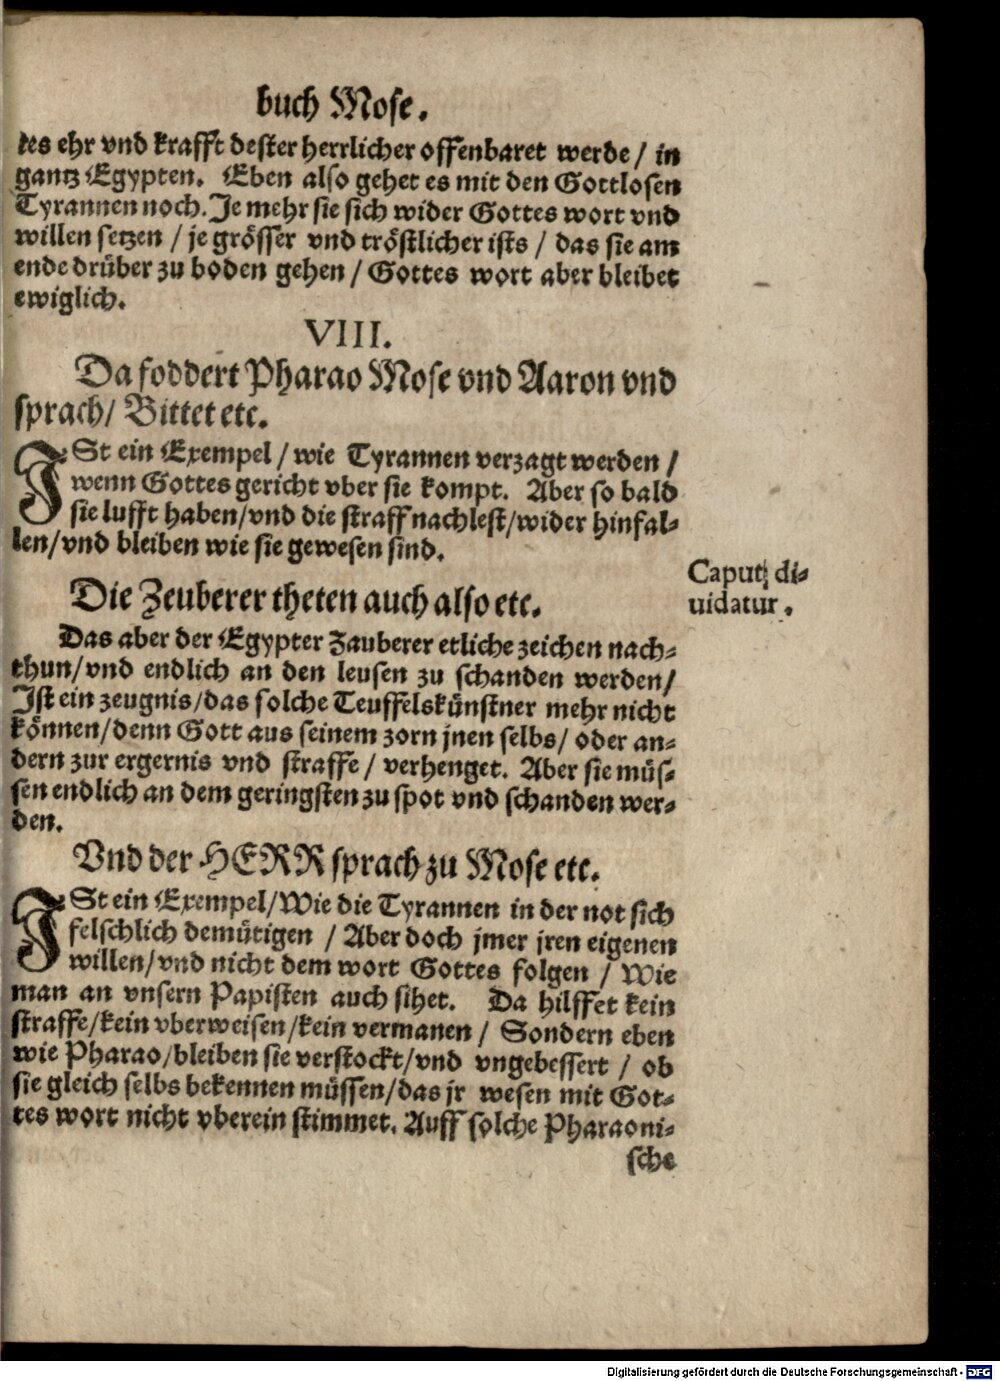 buch Mose.
tes ehr vnd krafft dester herrlicher offenbaret werde / in
gantz Egypten. Eben also gehet es mit den Gottlosen
Tyrannen noch. Je mehr sie sich wider Gottes wort vnd
willen setzen / je grösser vnd tröstlicher ists / das sie am
ende drüber zu boden gehen / Gottes wort aber bleibet
ewiglich.
VIII.
Da foddert Pharao Mose vnd Aaron vnd
sprach/ Bittet etc.
JSt ein Exempel / wie Tyrannen verzagt werden /
wenn Gottes gericht vber sie kompt. Aber so bald
sie lufft haben/vnd die straff nachlest/wider hinfal-
len/vnd bleiben wie sie gewesen sind.
Die Zeuberer theten auch also etc.
Caput di-
uidatur.
Das aber der Egypter Zauberer etliche zeichen nach-
thun/vnd endlich an den leusen zu schanden werden/
Jst ein zeugnis/das solche Teuffelskünstner mehr nicht
können/denn Gott aus seinem zorn jnen selbs/ oder an-
dern zur ergernis vnd straffe / verhenget. Aber sie müs-
sen endlich an dem geringsten zu spot vnd schanden wer-
den.
Vnd der HERR sprach zu Mose etc.
JSt ein Exempel/Wie die Tyrannen in der not sich
felschlich demütigen / Aber doch jmer jren eigenen
willen/vnd nicht dem wort Gottes folgen / Wie
man an vnsern Papisten auch sihet. Da hilffet kein
straffe/kein vberweisen/kein vermanen / Sondern eben
wie Pharao/bleiben sie verstockt/vnd vngebessert / ob
sie gleich selbs bekennen müssen/das jr wesen mit Got-
tes wort nicht vberein stimmet. Auff solche Pharaoni-
sche
Digitalisierung gefördert durch die Deutsche Forschungsgemeinschaft - DFG